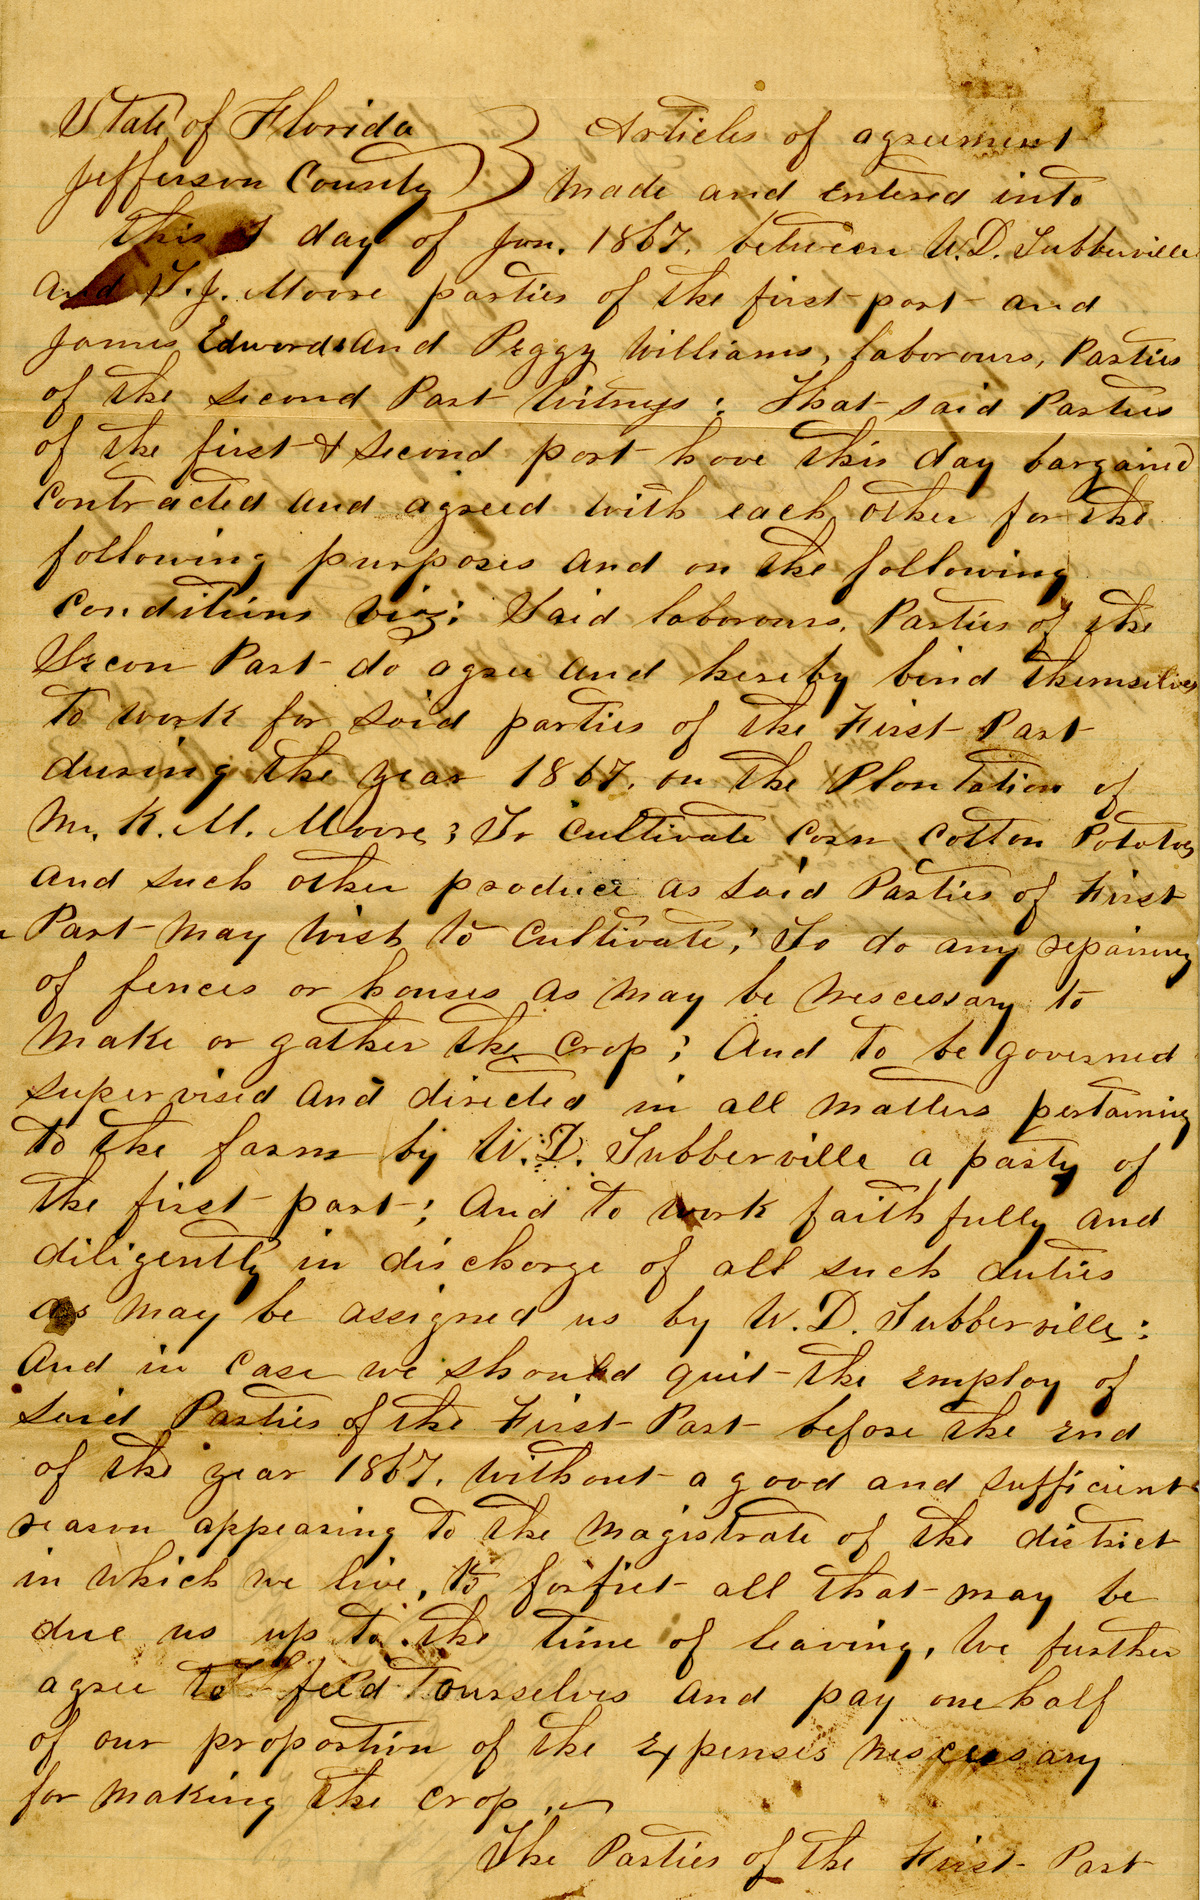 State of Florida } Articles of agreement
Jefferson County } made and entered into
this 1 day of Jan. 1867. between W.D. Tubberville
and T.J. Moore parties of the first part and
James Edwards and Peggy Williams, labourours, Parties
of the second Part Witness: That said Parties
of the first & second part have this day bargained
contracted and agreed with each other for the
following purposes and on the following
conditions viz; Said laborours, Parties of the
Secon Part do agree and hereby bind themselves
to work for said parties of the First Part
during the year 1867. on the Plantation of
Mr. K. M. Moore; To cultivate corn cotton Potatoes
and such other produce as said Parties of First
Part may wish to cultivate; To do any repairing
of fences or houses as may be nescessary to
make or gather the crop; And to be governed
supervised and directed in all matters pertaining
to the farm by W.D. Tubberville a party of
the first part; And to work faithfully and
diligently in discharge of all such duties
as may be assigned us by W. D. Tubberville:
And in case we should quit the employ of
said Parties of the First Part before the end
of the year 1867. without a good and sufficient
reason appearing to the magistrate of the district
in which we live, to forfiet all that may be
due us up to the time of leaving, We further
agree to feed ourselves and pay one half
of our proportion of the expenses nescessary
for making the crop.
The Parties of the First Part